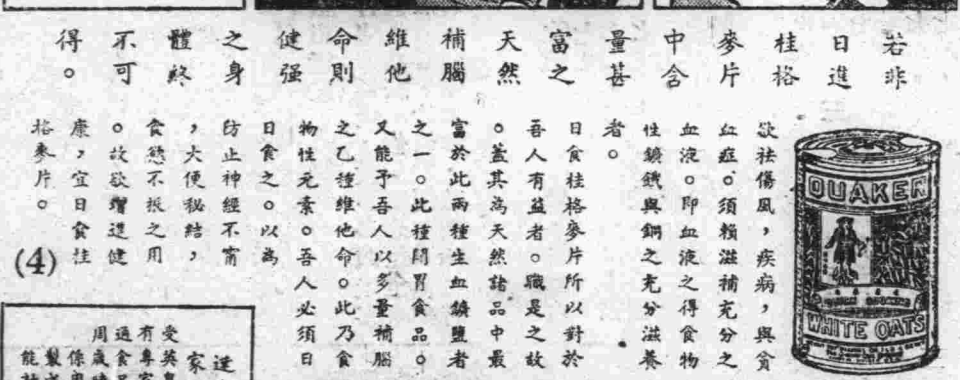 若非
日進
桂格
麥片
中含
量甚
富之
天然
補腦
維他
命則
健强
之身
體終
不可
得。
欲祛傷風，疾病，與貧
血症。須賴滋補充分之
血液。即血液之得食物
性鐵與銅之充分滋養
者。
日食桂格麥片所以對於
吾人有益者。職是之故
。蓋其為天然諸品中最
富於此兩種生血鑛鹽者
之一。此種開胃食品。
又能予吾人以多量補腦
之乙種維他命。此乃食
物性元素。吾人必須日
日食之。以為
防止神經不甯
，大便秘結，
食慾不振之用
。故欲增進健
康，宜日食桂
格麥片。
(4)
QUAKER
WHITE OATS